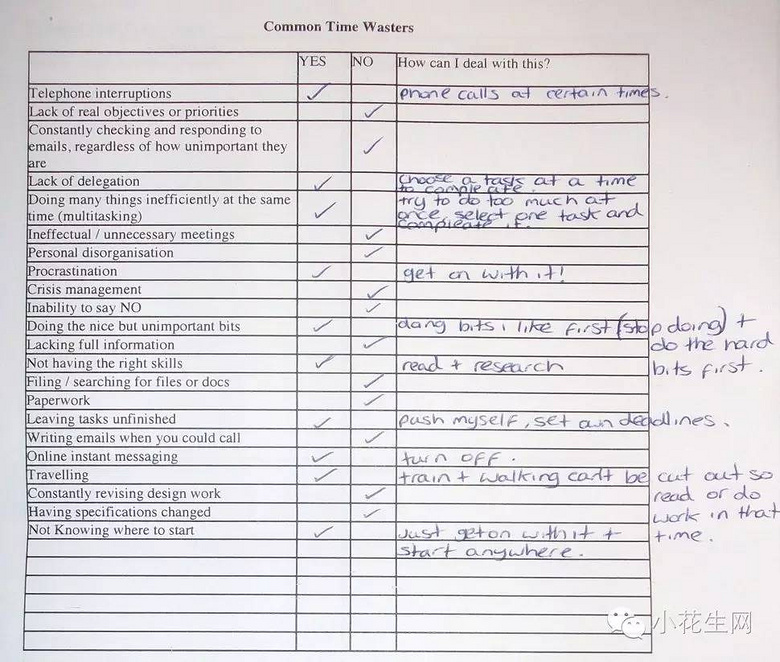 Common Time Wasters
YES NO How can I deal with this?
Telephone interruptions phone calls at certain times.
Lack of real objectives or priorities
Constantly checking and responding to
emails, regardless of how unimportant they
are
Lack of delegation choose a task at a time
to compleate.
Doing many things inefficiently at the same try to do too much at
time (multitasking) once, select one task and
compleate it.
Ineffectual / unnecessary meetings
Personal disorganisation
Procrastination get on with it!
Crisis management
Inability to say NO
Doing the nice but unimportant bits doing bits i like first (stop doing) +
Lacking full information do the hard
Not having the right skills read + research bits first.
Filing / searching for files or docs
Paperwork
Leaving tasks unfinished push myself, set own deadlines.
Writing emails when you could call
Online instant messaging turn off.
Travelling train + walking can't be cut out so
Constantly revising design work read or do
Having specifications changed work in that
Not Knowing where to start Just get on with it + time.
start anywhere.
小花生网